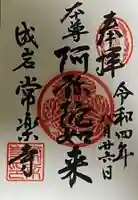 奉拝
令和四年
八月廿六日
本尊
阿弥陀如来
成岩
常楽寺